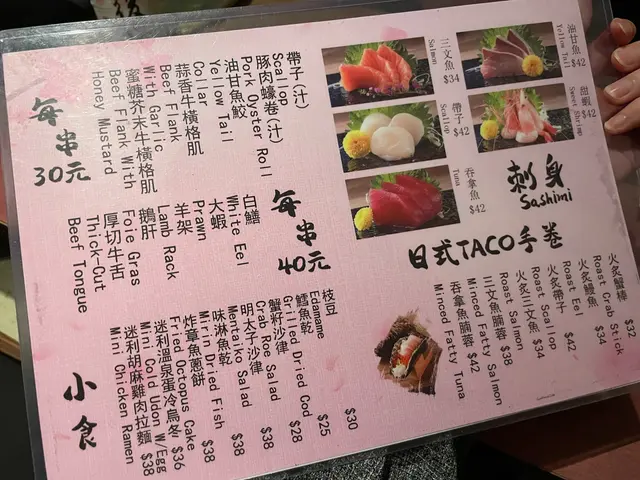 刺身
Sashimi
油甘魚
Yellow Tail
$42
三文魚
Salmon
$34
甜蝦
Sweet Shrimp
$42
帶子
Scallop
$42
吞拿魚
Tuna
$42
日式TACO手卷
火炙蟹棒
Roast Crab Stick $32
火炙鰻魚
Roast Eel $34
火炙帶子
Roast Scallop $42
火炙三文魚
Roast Salmon $34
三文魚腩蓉 $38
Minced Fatty Salmon
吞拿魚腩蓉 $42
Minced Fatty Tuna
每串
30元
帶子(汁)
Scallop
豚肉蠔卷(汁)
Pork Oyster Roll
油甘魚鮫
Yellow Tail
Collar
蒜香牛橫格肌
Beef Flank
With Garlic
蜜糖芥末牛橫格肌
Beef Flank With
Honey Mustard
每串
40元
白鱔
White Eel
大蝦
Prawn
羊架
Lamb Rack
鵝肝
Foie Gras
厚切牛舌
Thick-Cut
Beef Tongue
小食
枝豆 $30
Edamame
鱈魚乾 $25
Grilled Dried Cod
蟹籽沙律 $28
Crab Roe Salad
明太子沙律 $38
Mentaiko Salad
味淋魚乾 $38
Mirin Dried Fish
炸章魚蔥餅 $38
Fried Octopus Cake
迷利溫泉蛋冷烏冬 $36
Mini Cold Udon W/Egg
迷利胡麻雞肉拉麵 $38
Mini Chicken Ramen